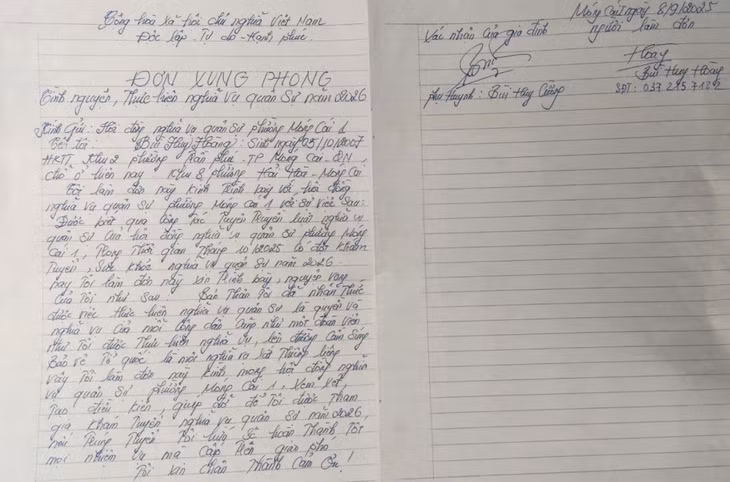 Cộng hoà xã hội chủ nghĩa Việt Nam
Độc lập - Tự do - Hạnh phúc
ĐƠN XUNG PHONG
Tình nguyện, Thực hiện nghĩa vụ quân sự năm 2026
Kính gửi: Hội đồng nghĩa vụ quân sự phường Móng Cái 1
Tôi là Bùi Huy Hoàng: Sinh ngày 05/10/2007
HKTT, Khu 2 phường Trần Phú - TP Móng Cái - QN
Chỗ ở hiện nay Khu 8 phường Hải Hoà - Móng Cái
Tôi làm đơn này kính trình bày với hội đồng
nghĩa vụ quân sự phường Móng Cái 1 với sự việc sau:
Được biết qua công tác tuyên truyền luật nghĩa vụ
quân sự của hội đồng nghĩa vụ quân sự phường Móng
Cái 1, trong thời gian tháng 10/2025 có đợt khám
tuyển, sức khỏe nghĩa vụ quân sự năm 2026
nay tôi làm đơn này xin trình bày, nguyện vọng
của tôi như sau Bản thân tôi đã nhận thức
được việc thực hiện nghĩa vụ quân sự là quyền và
nghĩa vụ của mỗi công dân cũng như một đoàn viên
như tôi được thực hiện nghĩa vụ, lên đường cầm súng
Bảo vệ Tổ quốc là một nghĩa vụ rất thiêng liêng
vậy tôi làm đơn này kính mong hội đồng nghĩa
vụ quân sự phường Móng Cái 1, xem xét,
tạo điều kiện, giúp đỡ để tôi được tham
gia khám tuyển, nghĩa vụ quân sự năm 2026,
nếu trúng tuyển tôi hứa sẽ hoàn thành tốt
mọi nhiệm vụ mà cấp trên giao phó
Tôi xin chân thành cảm ơn!
Móng Cái ngày 8/9/2025
Xác nhận của gia đình người làm đơn
Hoàng
Phụ huynh: Bùi Huy Cường Bùi Huy Hoàng